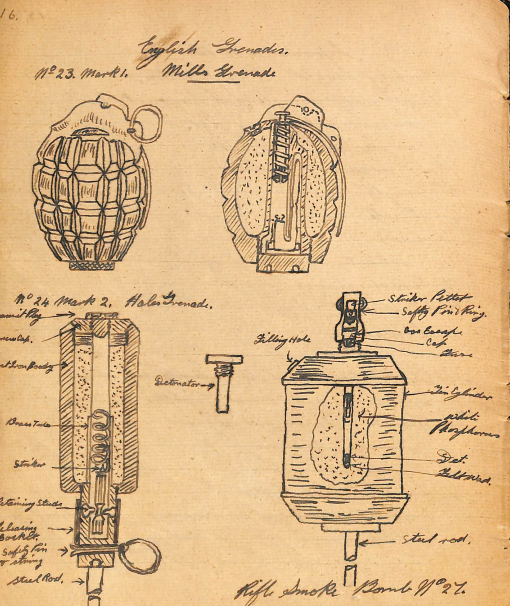 16.
English Grenades.
Nº 23. Mark 1. Mills Grenade
Nº 24 Mark 2. Hales Grenade.
Brass Tube
Striker
Retaining Studs
Releasing
Socket.
Safety Pin
or string
Steel Rod.
Detonator
Filling Hole
Striker Pellet
Safty Pin & Ring.
Gas Escape
Cap
Tin Cylinder
White
Phosphorus
Det.
Steel rod.
Rifle Smoke Bomb Nº 27.